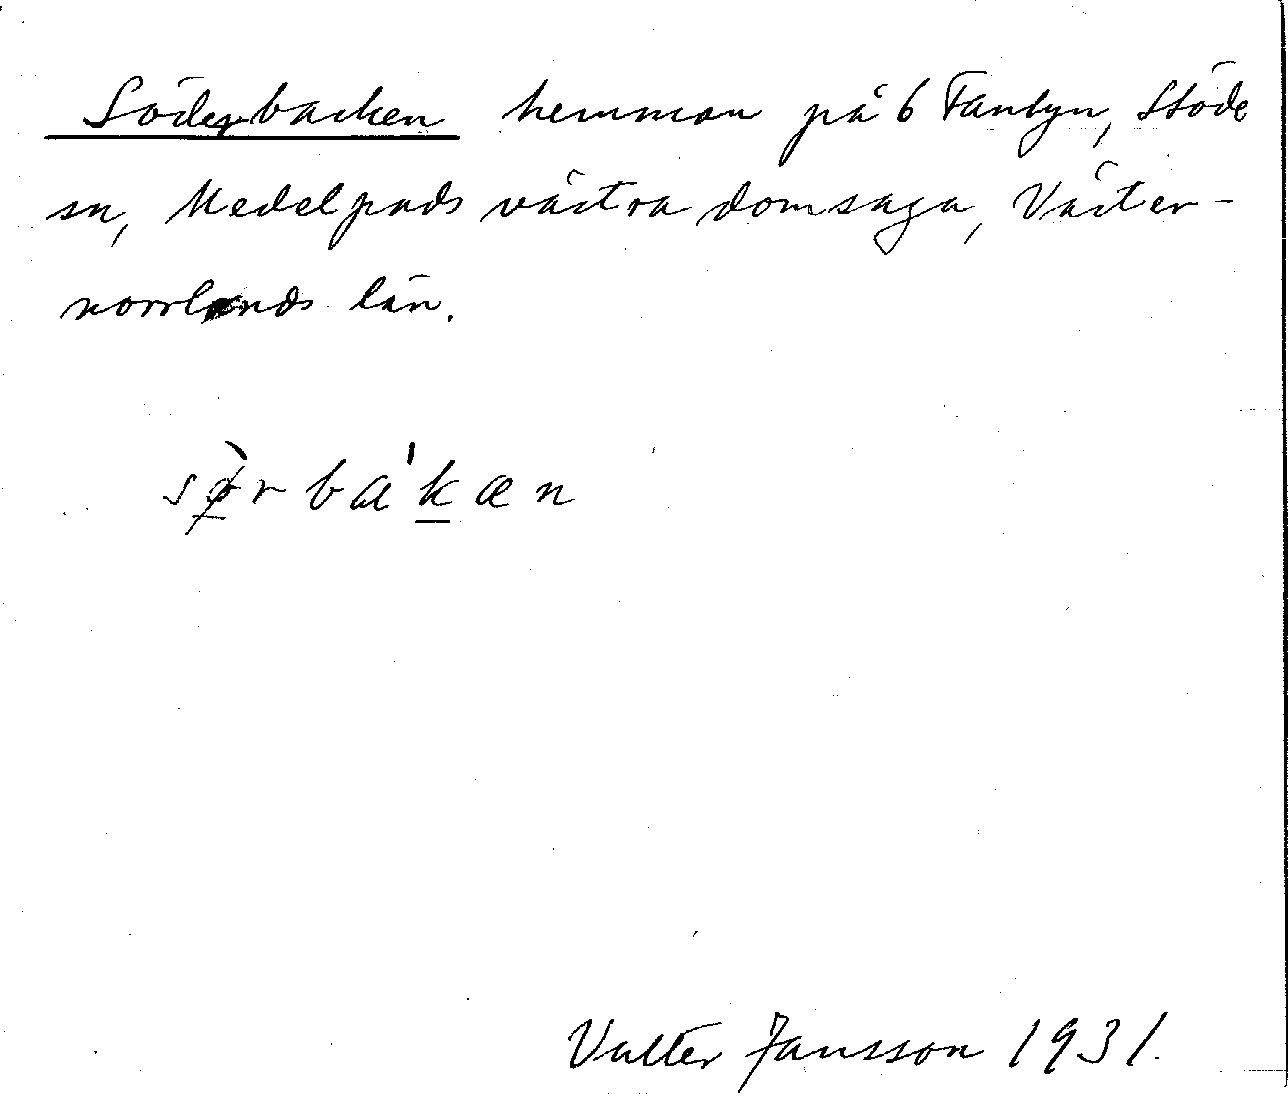 Söderbacken hemman på 6 Fanbyn, Stöde
sn, Medelpads västra domsaga, Väster-
norrlands län.
sø̀rbàˈkæn
Valter Jansson 1931.